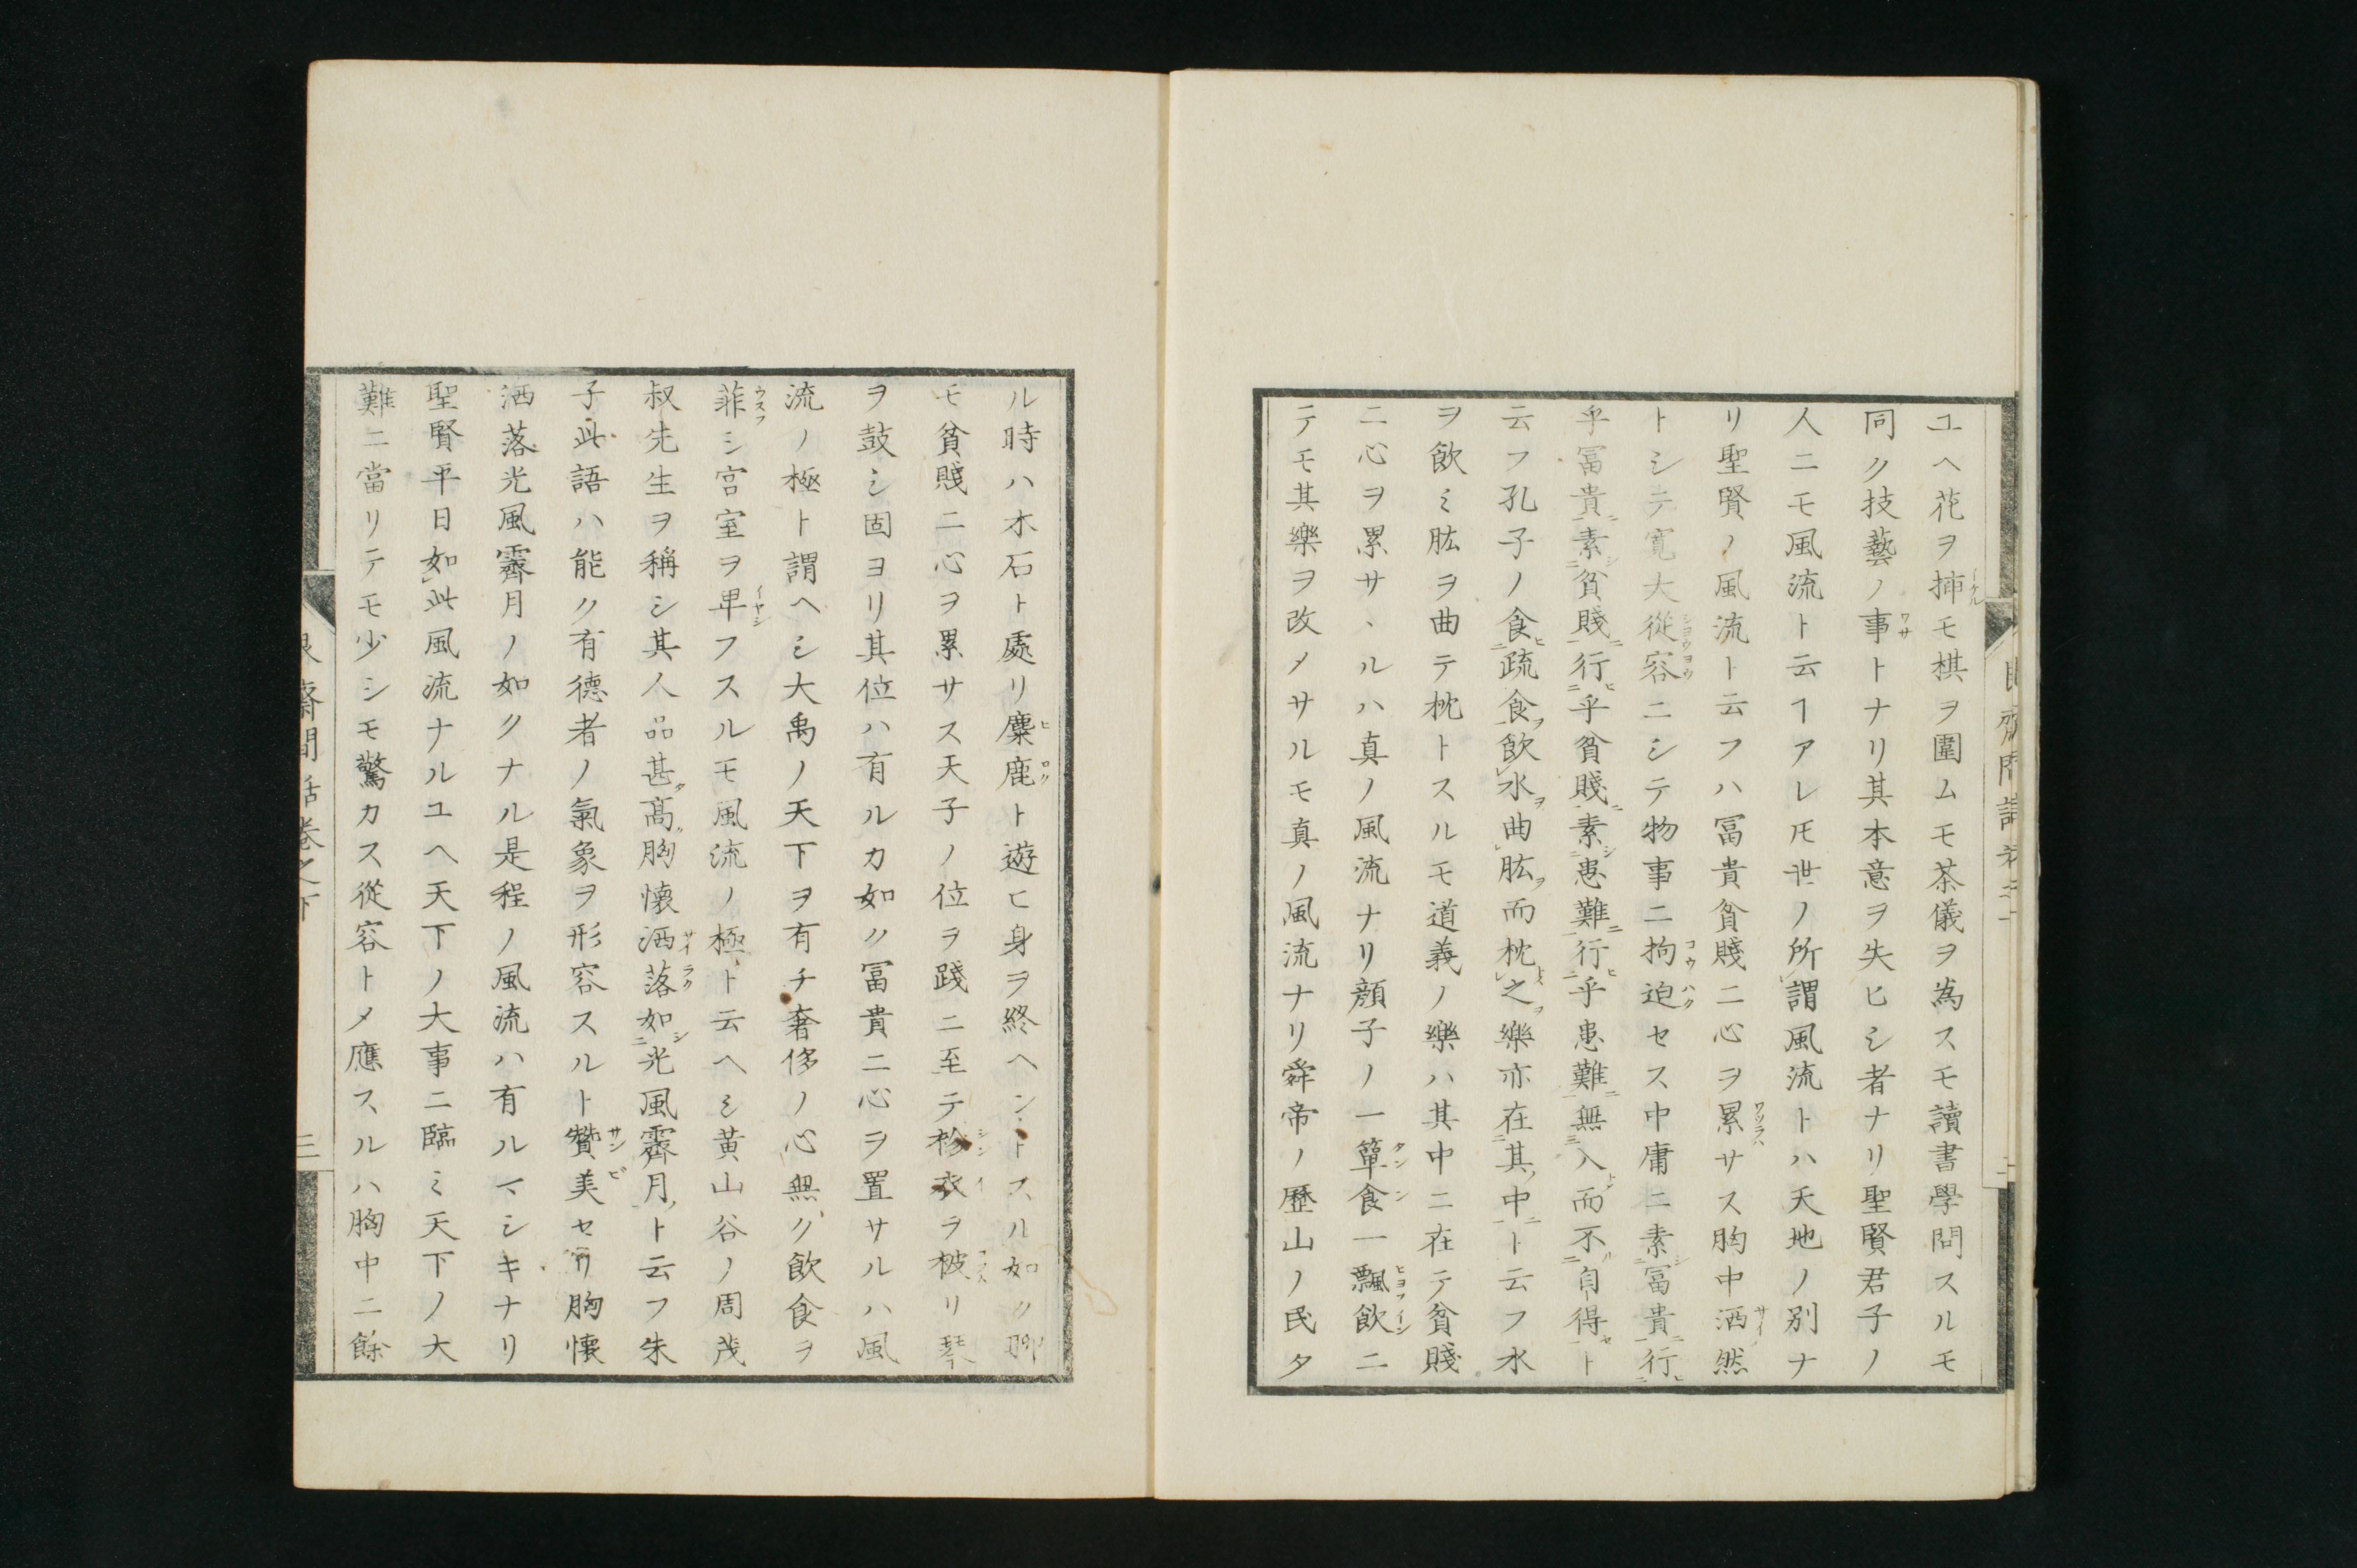 ユヘ花ヲ挿モ棋ヲ圍ムモ茶儀ヲ為スモ讀書學問スルモ
同ク技藝ノ事トナリ其本意ヲ失ヒシ者ナリ聖賢君子ノ
人ニモ風流ト云ヿアレ𪜈世ノ所謂風流トハ天地ノ別ナ
リ聖賢ノ風流ト云フハ冨貴貧賤ニ心ヲ累サス胸中洒然
トシテ寛大從容ニシテ物事ニ拘迫セス中庸ニ素冨貴行
乎冨貴素貧賤行乎貧賤素患難行乎患難無入而不自得ト
云フ孔子ノ食疏食飲水曲肱而枕之樂亦在其中ト云フ水
ヲ飲ミ肱ヲ曲テ枕トスルモ道義ノ樂ハ其中ニ在テ貧賤
ニ心ヲ累サヽルハ真ノ風流ナリ顔子ノ一簞食一瓢飲ニ
テモ其樂ヲ改メサルモ真ノ風流ナリ舜帝ノ歷山ノ民タ
ル時ハ木石ト處リ麋鹿ト遊ヒ身ヲ終ヘントスル如ク聊
モ貧賤ニ心ヲ累サス天子ノ位ヲ踐ニ至テ袗衣ヲ被リ琴
ヲ鼓シ固ヨリ其位ハ有ルカ如ク冨貴ニ心ヲ置サルハ風
流ノ極ト謂ヘシ大禹ノ天下ヲ有チ奢侈ノ心無ク飲食ヲ
菲シ宮室ヲ卑フスルモ風流ノ極ト云ヘシ黄山谷ノ周茂
叔先生ヲ稱シ其人品甚髙胸懐洒落如光風霽月ト云フ朱
子此語ハ能ク有德者ノ氣象ヲ形容スルト贊美セリ胸懐
洒落光風霽月ノ如クナル是程ノ風流ハ有ルマシキナリ
聖賢平日如此風流ナルユヘ天下ノ大事ニ臨ミ天下ノ大
難ニ當リテモ少シモ驚カス從容トメ應スルハ胸中ニ餘
齋間話巻之下
三